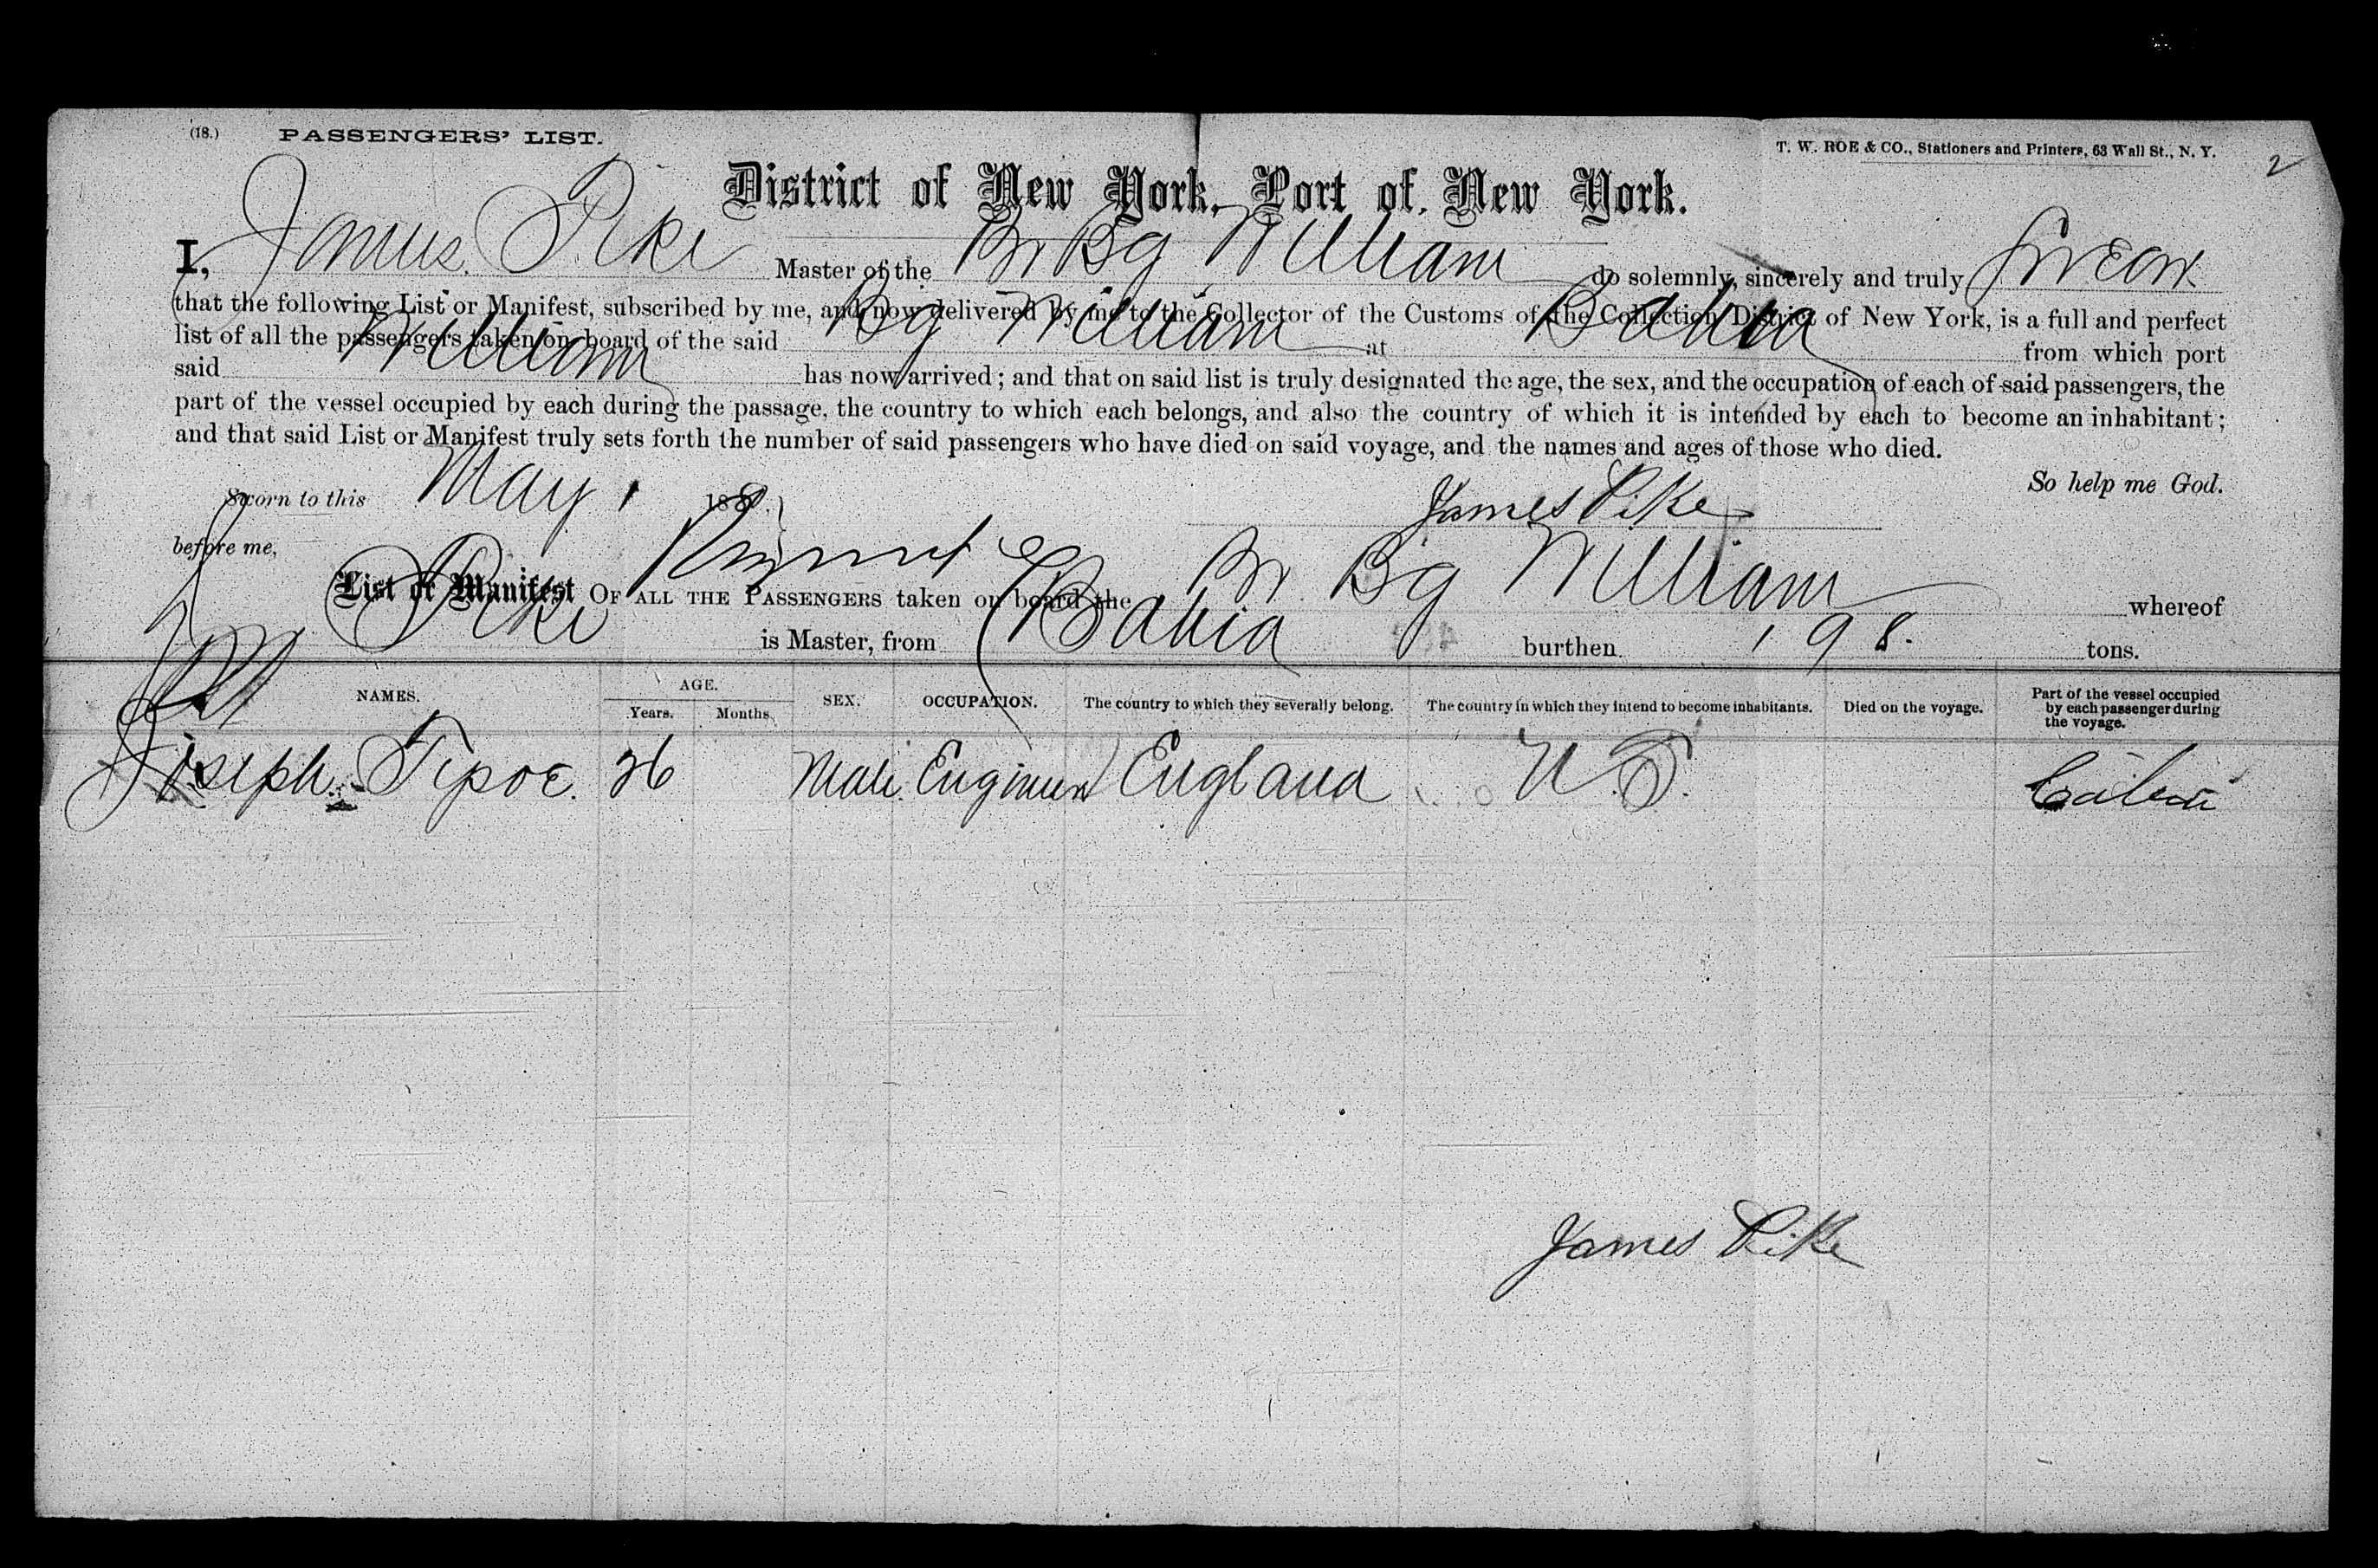 (18.) PASSENGERS' LIST. T. W. ROE & CO., Stationers and Printers, 63 Wall St., N. Y. 2
District of New York, Port of New York.
I, James Pike Master of the Br Bg William do solemnly, sincerely and truly swear
that the following List or Manifest, subscribed by me, and now delivered by me to the Collector of the Customs of the Collection District of New York, is a full and perfect
list of all the passengers taken on board of the said Bg William at Bahia from which port
said William has now arrived; and that on said list is truly designated the age, the sex, and the occupation of each of said passengers, the
part of the vessel occupied by each during the passage, the country to which each belongs, and also the country of which it is intended by each to become an inhabitant;
and that said List or Manifest truly sets forth the number of said passengers who have died on said voyage, and the names and ages of those who died.
So help me God.
Sworn to this May 1 188 James Pike
before me,
List or Manifest OF ALL THE PASSENGERS taken on board the Br Bg William whereof
Pike is Master, from Bahia burthen 198. tons.
NAMES. AGE. Years. Months. SEX. OCCUPATION. The country to which they severally belong. The country in which they intend to become inhabitants. Died on the voyage. Part of the vessel occupied by each passenger during the voyage.
Joseph 26 Male Engineer England U.S. Cabin
James Pike